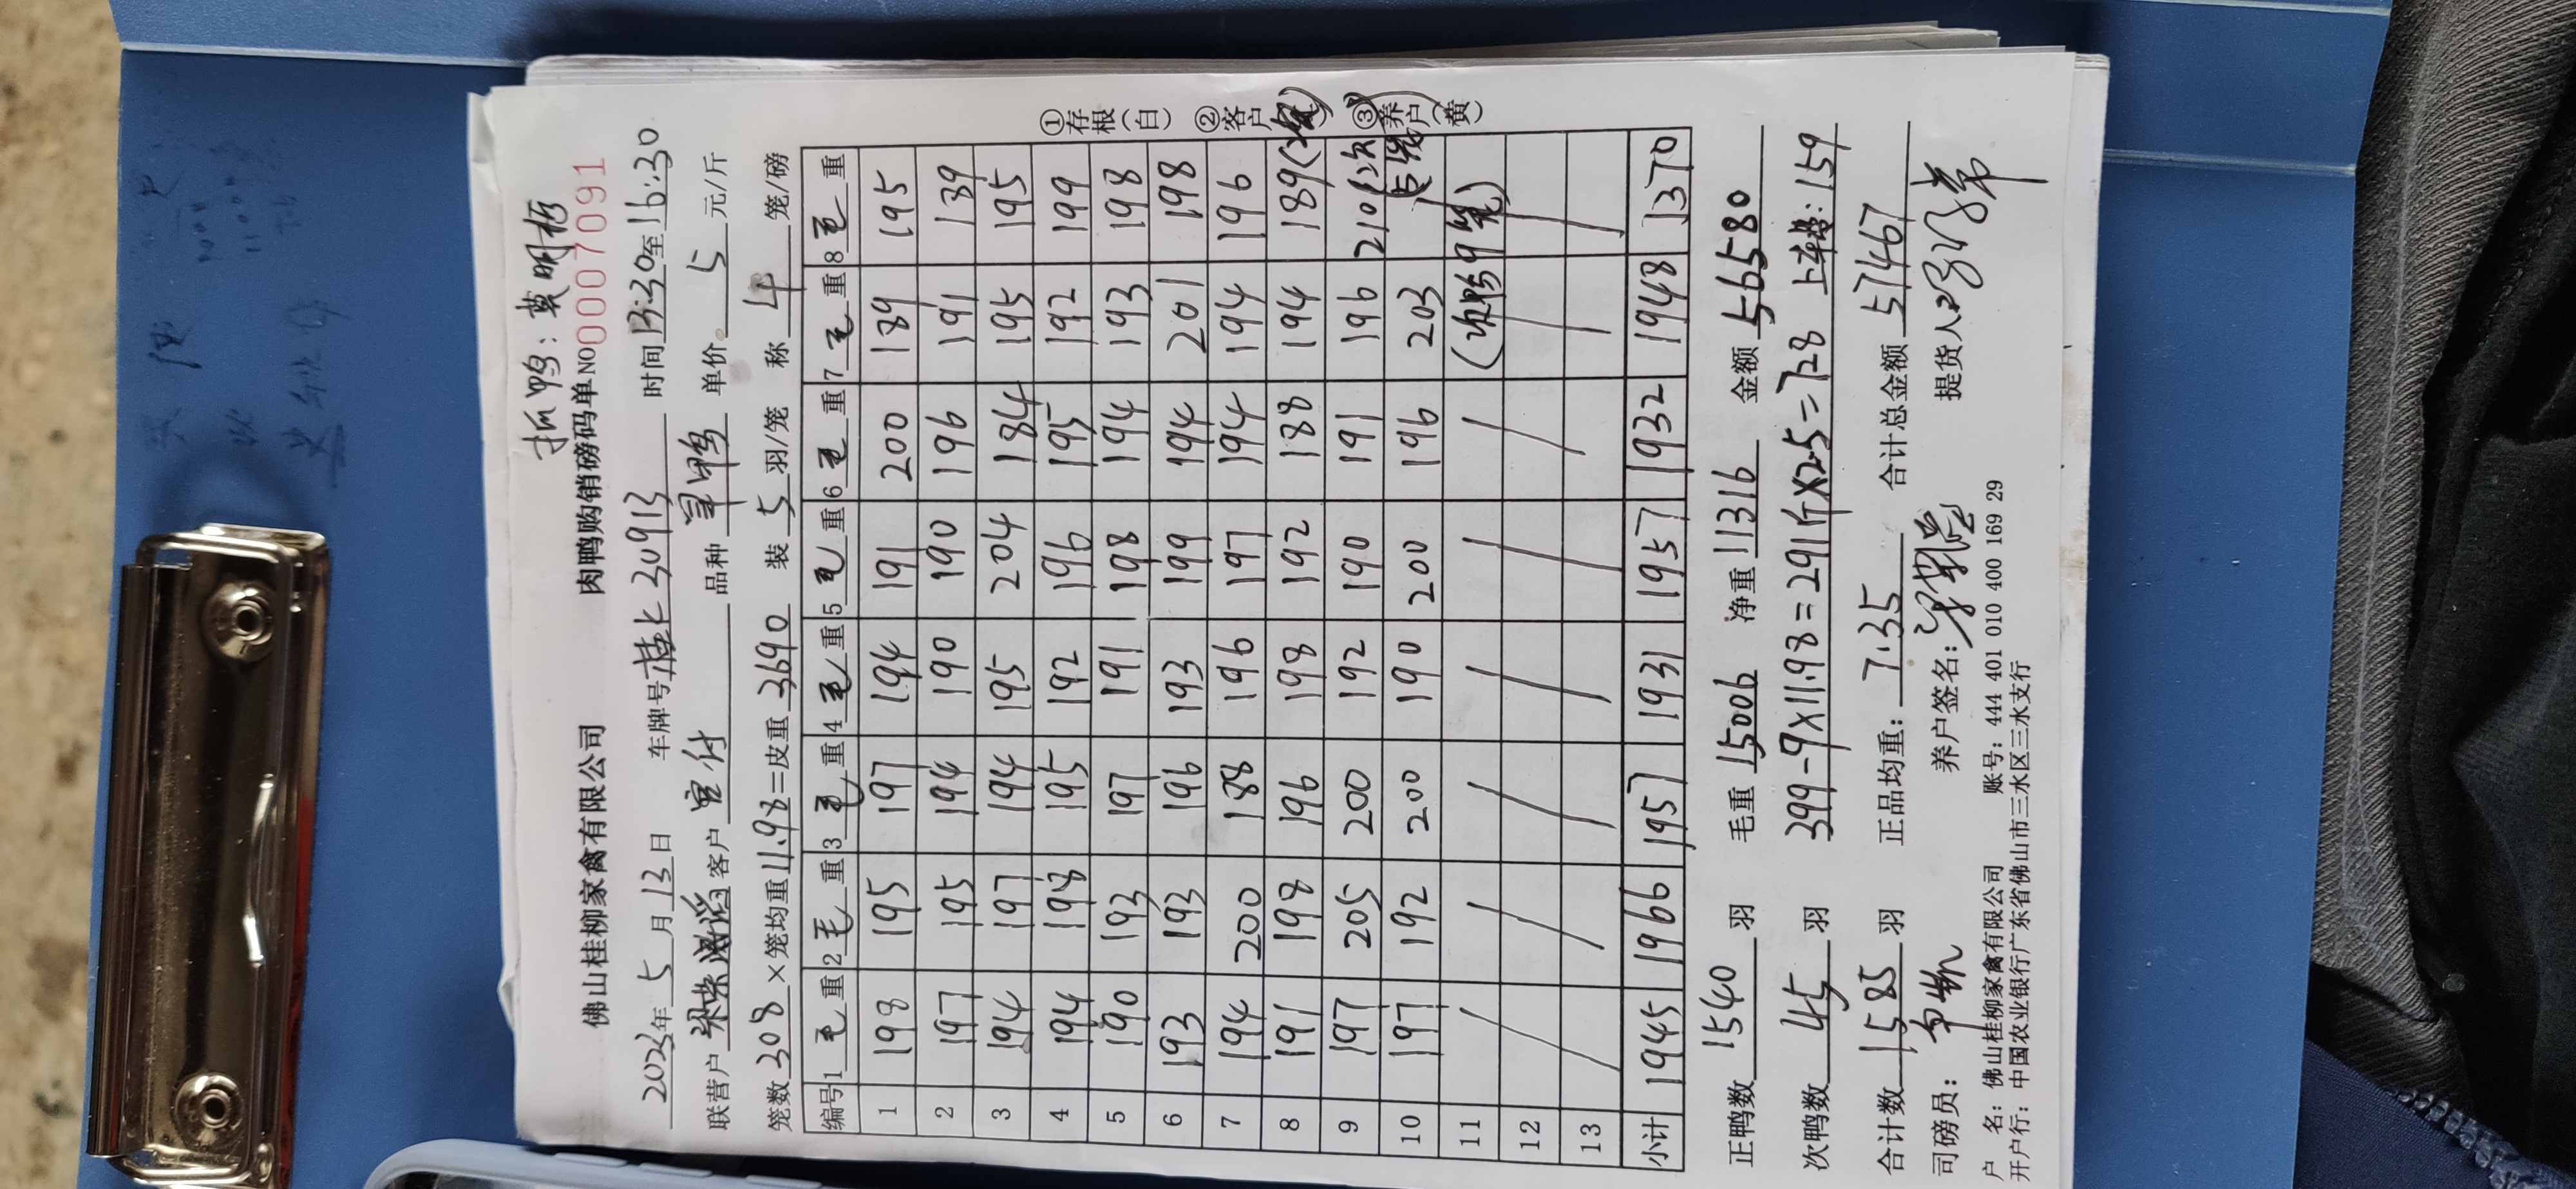 抓鸭：莫明栋
佛山桂柳家禽有限公司 肉鸭购销磅码单 NO 0007091
2023年5月13日 车牌号 桂L 30913 时间 13:30至16:30
联营户 客户 品种 单价 5 元/斤
笼数 308 × 笼均重 11.98 = 皮重 3690 装 5 羽/笼 称 4 笼/磅
编号 1 毛重 2 毛重 3 毛重 4 毛重 5 毛重 6 毛重 7 毛重 8 毛重
1 198 195 197 194 191 200 189 195
2 197 195 194 190 190 196 191 139
3 194 197 194 195 204 184 195 195
4 194 198 195 192 196 195 192 199
5 190 193 197 191 198 194 193 198
6 193 193 196 193 199 194 201 198
7 194 200 188 196 197 194 194 196
8 191 198 196 198 192 188 194 189
9 197 205 200 192 190 191 196 210
10 197 192 200 190 200 196 203
11 (次鸭9笼)
12
13
小计 1945 1966 1957 1931 1957 1932 1948 1370
正鸭数 1540 羽 毛重 15006 净重 11316 金额 56580
次鸭数 45 羽 399-9×11.98=291斤×2.5=728 上车费:159
合计数 1585 羽 正品均重: 7.35 合计总金额 57467
司磅员: 养户签名: 提货人:
户 名: 佛山桂柳家禽有限公司 账号: 444 401 010 400 169 29
开户行: 中国农业银行广东省佛山市三水区三水支行
①存根(白) ②客户 ③养户(黄)